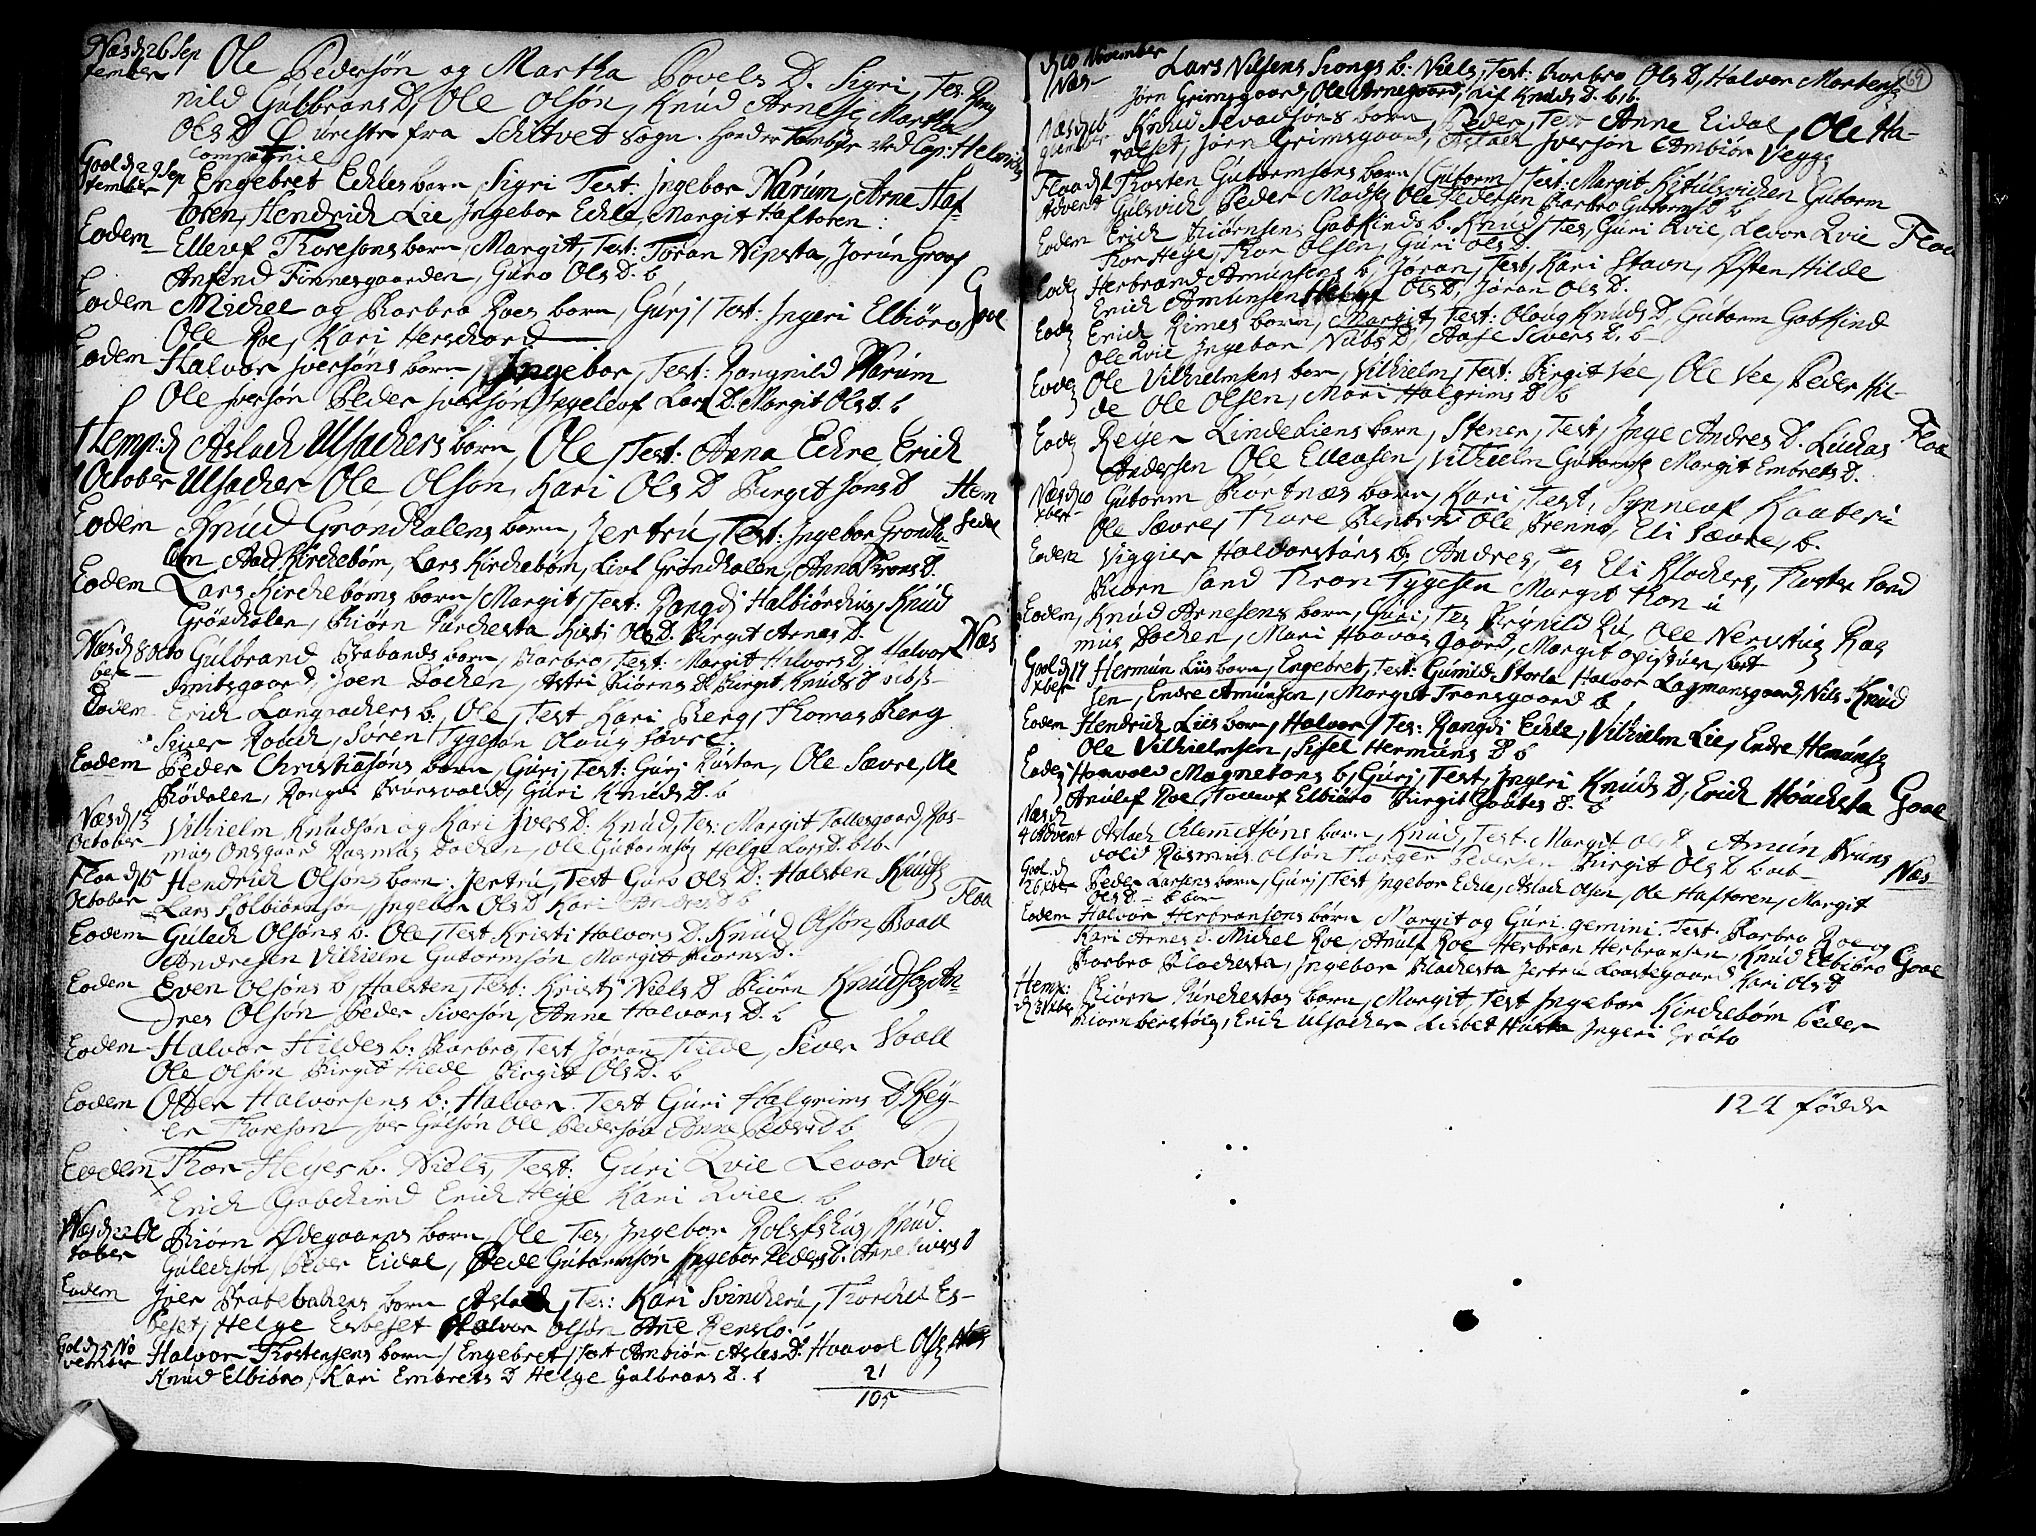 Næs d 26 Sep Ole Pedersøn og Martha Povels D. Sigri, Tes. Rang
tember nild Gulbrans D, Ole Olsøn, Knud Arness, Martha
Ols D urestr fra Schitvet sogn. hand er Tambur ved Cap: Helvigs
Compagnie
Gool d 29 Sep Engebret Eckles barn, Sigri Test: Ingebor Narum, Arne Haf
tember toren, Hendrich Lie, Ingebor Eckle, Margit Haftoren
Eodem Ellevf Thoresøns barn, Margit, Test: Toran Nipsta, Jorun Groof
Anfend Finnesgaarden, Guro Ols D. b
Eodem Michel og Barbro Roes barn, Gurj, Test: Ingeri Elbiøro Gool
Ole Roe, Kari Herschord
Eodem Halvor Iversøns barn, Ingebor, Test: Rangnild Narum
Ole Iversøn Peder Iversøn Ingeleof Lars D. Margit Ols D. b
Hemp: d Aslach Ulsachers barn, Ole, Test. Anna Eckre, Erich
1 October Ulsacher Ole Olsøn, Kari Ols D Birgit Jons D Hem
Eodem Knud Grøndhalens barn, Jertru, Test: Ingebor Grondha- sedal
len, Aad Kirchebøm, Lars Kirchebøm, Livl Grøndhalen, Anna Brons D.
Eodem Lars Kirchebøms barn, Margit, Test: Rangdj Halbiørchus, Knud
Grøndhalen, Biørn Purchesta Kisti Ols D. Birgit Arnes D.
Næs d 8 octo Gulbrand Brabands barn, Barbro, Test: Margit Halvors D, Halvor Næs
ber Smitsgaard, Joen Dochen, Astri Biørns D Birgit Knuds D
Eodem Erich Langaachers b: Ole, Test Kari Berg, Thomas Berg
Siver Rouch, Søren Tygesøn Oloug Søvre
Eodem Peder Christiansøns barn, Guri, Test: Gurj Rustan, Ole Sævre, Ole
Bødalen, Rangdi Brunsvold, Guri Knuds D. b
Næs d 13 Vilhielm Knudsøn og Kari Ivers D. Knud, Tes: Margit Tollesgaard, Ras-
October mus Onsgaard Rasmus Dochen, Ole Gutormsøn Helge Lars D. b
Flaa d 15 Hendrich Olsøns barn: Jertru, Test Guro Ols D: Halsten Knuds
October Lars Kolbiørnsøn, Ingebor Ols D Kari Andres D b Flaa
Eodem Gulach Olsøns b. Ole, Test Kristi Halvors D. Knud Olsøn, Baall
Andresen Vilhielm Gutormsøn Margit Biorns D.
Eodem Even Olsøns b, Halsten, Test: Kristj Niels D Biørn Knuds An-
dres Olsøn Peder Siversøn, Anne Halvors D. b
Eodem Halvor Hildes b: Barbro, Test Joran Hilde, Siver Vaall
Ole Olsøn Birgit Hilde Birgit Ols D. b
Eodem Offten Halvorsens b: Halvor. Test Guri Halgrims D Rey-
er Thoresøn, Joer Gulsøn Ole Pedersøn Anne Peders D b
Eodem Thor Heyes b. Niels, Test: Guri Qvie Levor Qvie
Erich Gabchind Erich Heye Kari Qviee. b
Næs d 22 Oc Biørn Ødegaarns barn Ole Tes Ingebor Rolsfshus, Knud
tober Gulechsøn, Siver Eidal, Pede Gutormsøn Ingebor Peders D. Anne Sivers D
Eodem Joer Bratebachens barn Aslach, Tes: Kari Svincheru, Thorchel Es-
beset, Helge Esbeset Halvor Olsøn Ane Renslo.
Gol d 5 No Halvor Thostensens barn, Engebret, Test Ambiør Asles D. Haavol Ols
vember Knud Elbiøro, Kari Embrets D Helge Gulbrans D. b
21
105
69
d 10 November Lars Nilsens Kongs b: Niels, Test: Barbro Ols D, Halvor Mortens
Næs Jørn Grimsgaard, Ole Arnegaard, Lif Knuds D. b
Næs d 16 Knud Sevadsøns barn, Peder, Test Anne Eidal, Ole Ha-
rolset, Jørn Grimsgaard, Aslach Iversøn Ambiør Vegge
Flaa d 1 Thosten Gutormsøns barn, Gutorm, Test: Margit Kitulsvichen Gutorm
Advent Gulsvich Peder Madss Ole Pedersen Barbro Gutorms D b
Eodem Erich Biørnsens Gabkinds b. Knud, Tes, Guri Qvie, Levor Qvie Flaa
Thor Heye, Thor Olsen, Guri Ols D.
Eod Herbrand Amundsens b, Joran, Test, Kari Stavn, Offten Hilde
Erich Amunsen Ols D, Joran Ols D.
Eod Erich Rimes barn, Margit, Test: Oloug Knuds D, Gutorm Gabkind
Ole Qvie Ingebor Niels D, Aase Sivers D. b
Eod Ole Vilhielmsens barn, Vilhielm, Test: Birgit Vee, Ole Vee, Peder Hil-
de Ole Olsen, Mari Halgrims D b
Eod Reyer Lindeliens barn, Stener, Test, Inge Andres D. Luckas Flaa
Andersen Ole Ellensen, Vilhielm Gutorms Margit Embrets D.
Næs d 10 Gutorm Børtnæs barn, Kari, Test, Synneve Kaaberu
xber Ole Sævre, Thore Bentri Ole Brenno, Eli Sævre, b.
Eodem Viggier Haldorsøns b: Andres, Tes Eli Klochers, Thosten Sand
Biorn Sand Thron Tygesen Margit Kon u
Eodem, Knud Arnesens barn, Guri, Tes Brynild Ru, Ole Nerstug Ras
mus Dochen, Mari Haavasgaard, Margit opistuen, bet
Gool d 17 Hermun Liis barn, Engebret, Test: Gunild Storla Halvor Lagmansgaard, Nils Knud
xber sen, Endre Amunsen, Margit Transgaard b
Eodem Hendrich Liis barn, Halvor, Tes: Rangdi Eckle, Vilhielm Lie, Endre Hermuns
Ole Vilhielmsen, Sisel Hermuns D b
Eod Haavold Magnetons b, Gurj, Test, Ingeri Knuds D, Erich Hoachsta Gool
Anulf Roe, Tollevf Elbiøro Birgit Goutes D. b
Næs d
4 Advent Aslach Clemetsøns barn, Knud, Test: Margit Ols D Amun Bruns
vold Rasmus Olsøn Thorger Pedersen Birgit Ols D b Næs
Gool d 26 xber Peder Larsens barn, Gurj, Test Ingebor Eckle, Aslach Olsen, Ole Haftoren, Margit
Ols D b
Eodem Halvor Herbransens børn Margit og Guri gemini. Test. Barbro Roe og
Kari Arnes D. Michel Roe, Anulf Roe Herbran Herbransen, Knud Elbiøro Gool
Barbro Blachesta, Ingebor Blachesta Jertru Loostegaard Kari Ols D
Hemp: d 31 xber Biørn Purchestas barn, Margit, Test Ingebor Kirchebøm Peder
Biornberstølg, Erich Ulsacher Lisbet Husta Ingeri Grøto
124 fødde